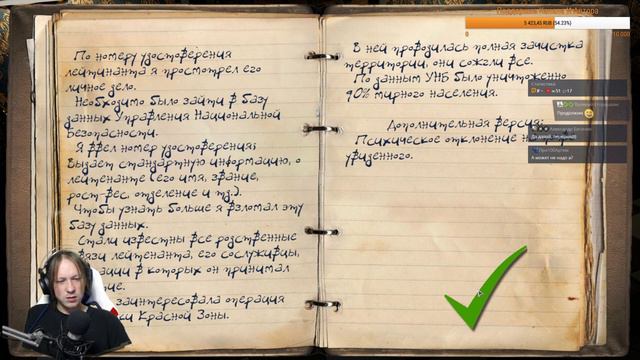 По номеру удостоверения
лейтинанта я просмотрел его
личное дело.
Необходимо было зайти в базу
данных Управления Национальной
Безопасности.
Я ввел номер удостоверения;
Вылезает стандартную информацию, о
лейтенанте (его имя, звание,
рост, вес, отделение и тд.).
Чтобы узнать больше я взломал эту
базу данных.
Стали известны все родственные
связи лейтенанта, его сослуживцы,
в которых он принимал
заинтересовала операция
Красной Зоны.
В ней проводилась полная зачистка
территории, они сожгли все.
По данным УНБ было уничтоженно
90% мирного населения.
Дополнительная версия:
Психическое отклонение
увиденного.
5 423,45 RUB (54.23%)
0
10 000
Продолжим
А может не надо а?